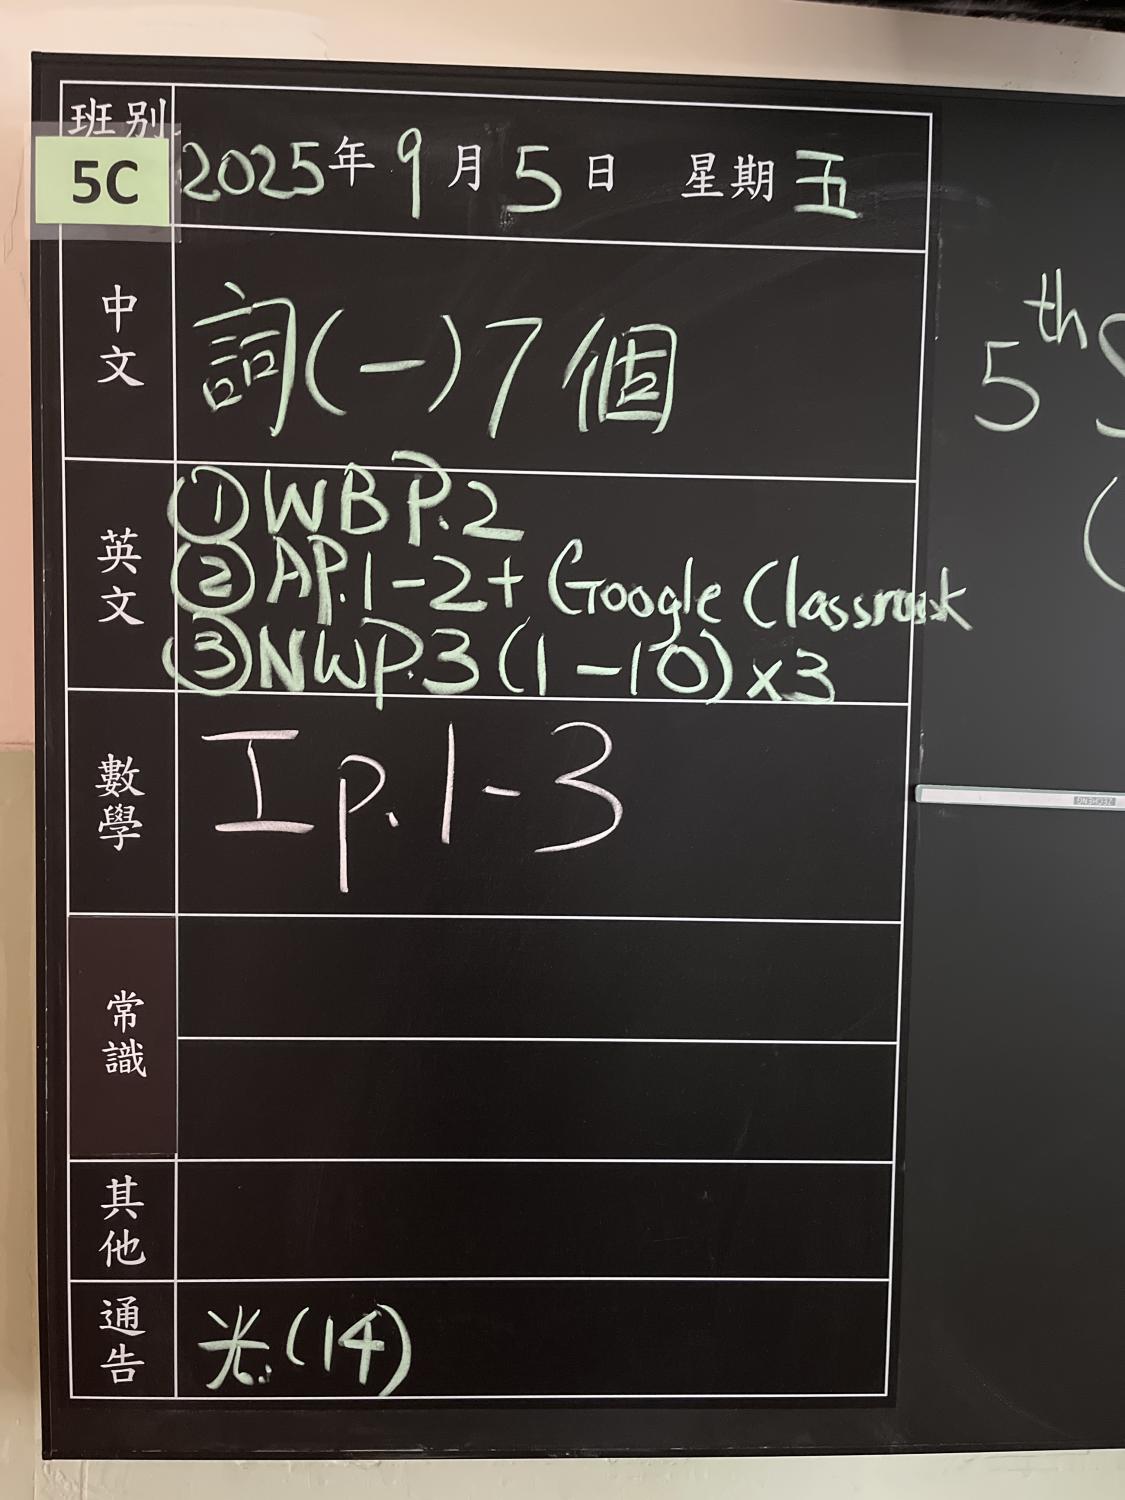 班別
5C
2025年9月5日 星期五
中文
詞(一)7個
英文
①WB P.2
②AP.1-2+ Google Classroom
③NWP.3(1-10)x3
數學
工 p.1-3
常識
其他
通告
光.(14)
5th